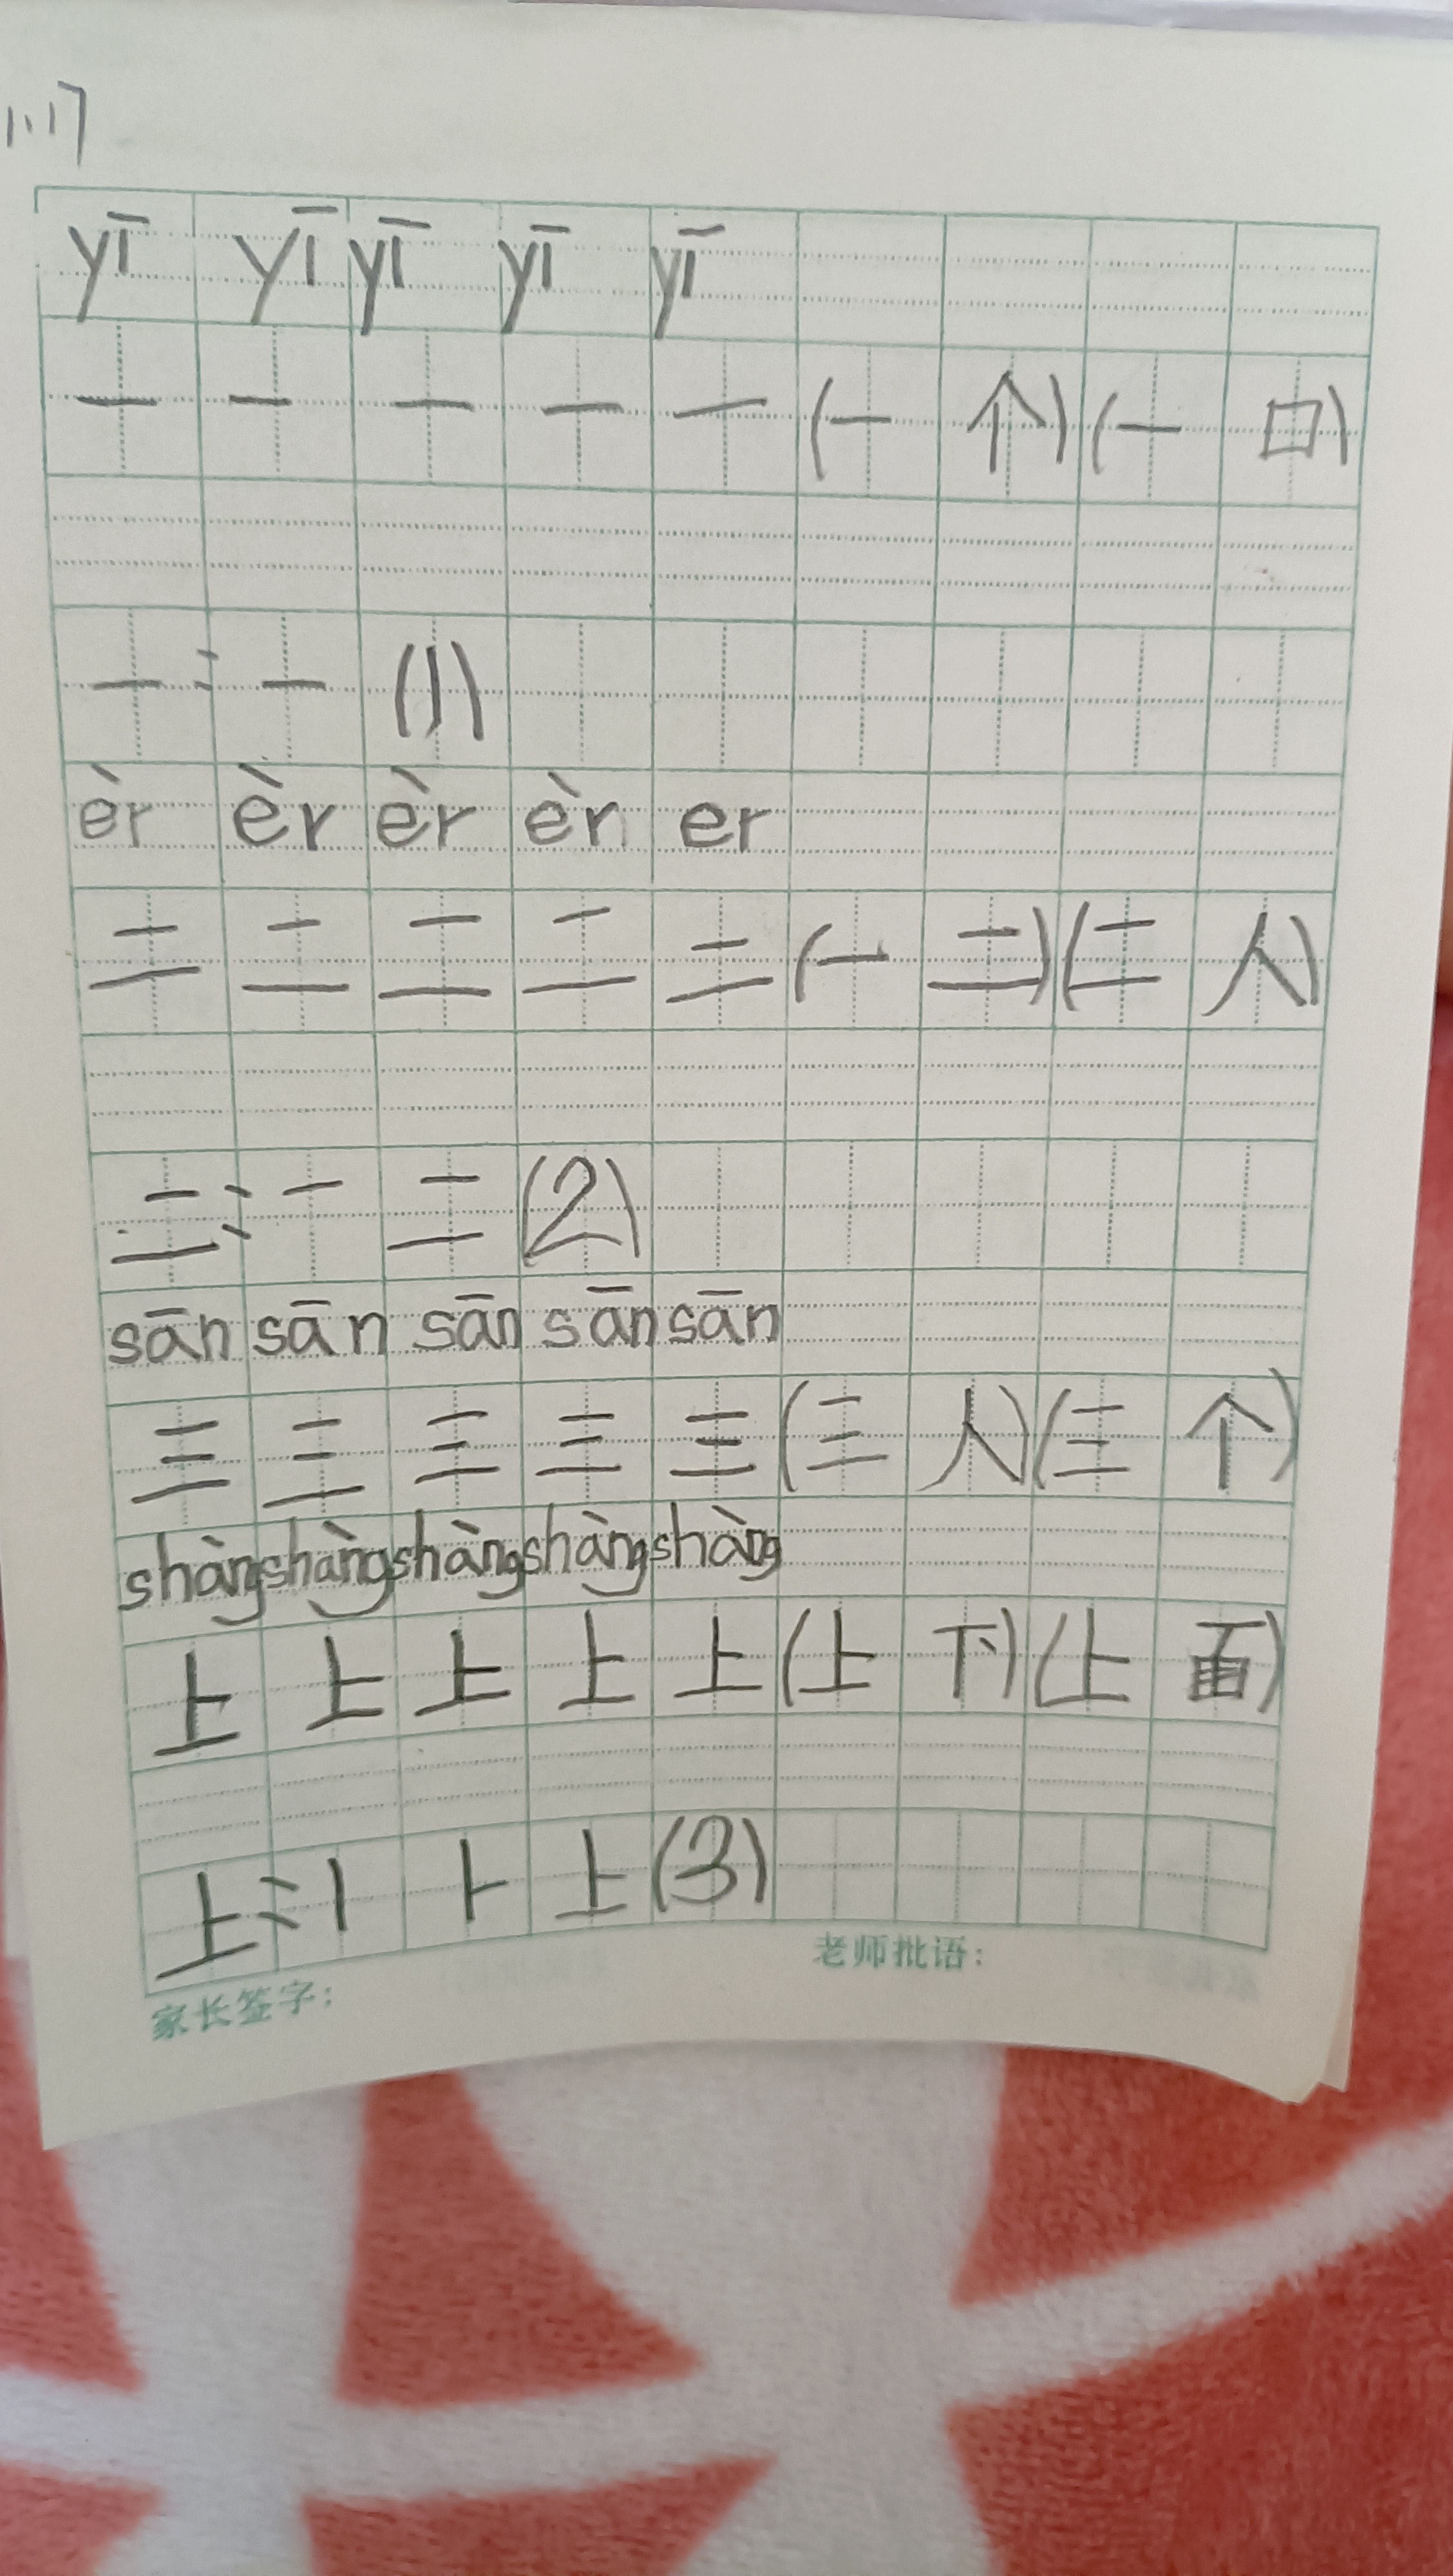 1.17
yī yī yī yī yī
一 一 一 一 一 (一 个) (一 口)
一: 一 (1)
èr èr èr èr er
二 二 二 二 二 (一 二) (二 人)
二: 一 二 (2)
sān sān sān sān sān
三 三 三 三 三 (三 人) (三 个)
shàng shàng shàng shàng shàng
上 上 上 上 上 (上 下) (上 面)
上: 丨 ⺊ 上 (3)
家长签字: 老师批语: